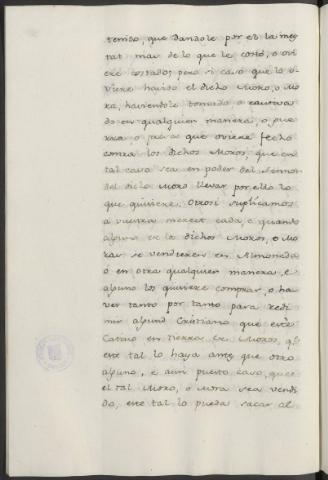 tenido, que dandole por el la mey
tat mas de lo que le costó, o ovi
ere costado; pero si caso que lo o-
viere havido el dicho Moro, o Mo
ra, haviendole tomado o cautiva
do en qualquier manera, o gue
rra, o presa que oviere fecho
contra los dichos Moros, que en
tal caso sea en poder del Sennor
del dicho Moro llevar por ello lo
que quisiere. Otrosi suplicamos
a vuestra merced cada, e quando
alguno de los dichos Moros, o Mo
ras se vendieren en Almoneda
ó en otra qualquier manera, e
alguno los quisiere comprar, o ha
ver tanto por tanto para redi
mir algund Cristiano que esté
Cativo en tierra de Moros, qe.
este tal lo haya antes que otro
alguno, e aun puesto caso, que
el tal Moro, o Mora sea vendi
do, este tal lo pueda sacar al